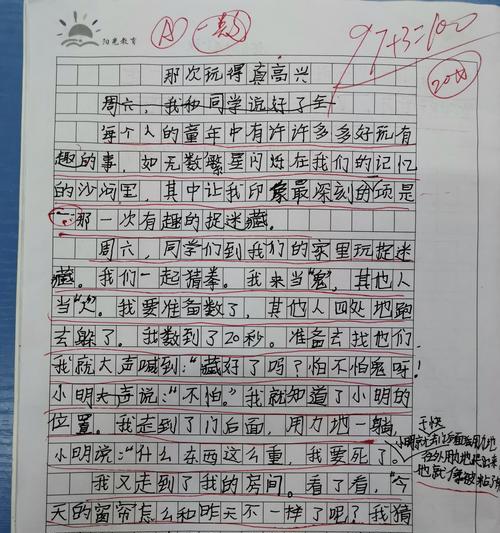 阳光教育
97+3=100
那次玩得真高兴
周六，我和同学说好了全
每个人的童年中有许许多多好玩有
趣的事，如无数繁星闪烁在我们的记忆
的沙河里，其中让我印象最深刻的项是
那一次有趣的捉迷藏。
周六，同学们到我们的家里玩捉迷
藏。我们一起猜拳。我来当“鬼”，其他人
当“人”。我要准备数了，其他人四处地跑
去躲了。我数到了20秒。准备去找他们
我就大声喊到：“藏好了吗？怕不怕鬼呀！
小明大声说：“不怕。”我就知道了小明的
位置。我走到了门后面，用力地一躺，
小明说：“什么东西这么重，我要死了。
我又走到了我的房间。看了看，“今
天的窗帘怎么和昨天不一样了吧？我猜